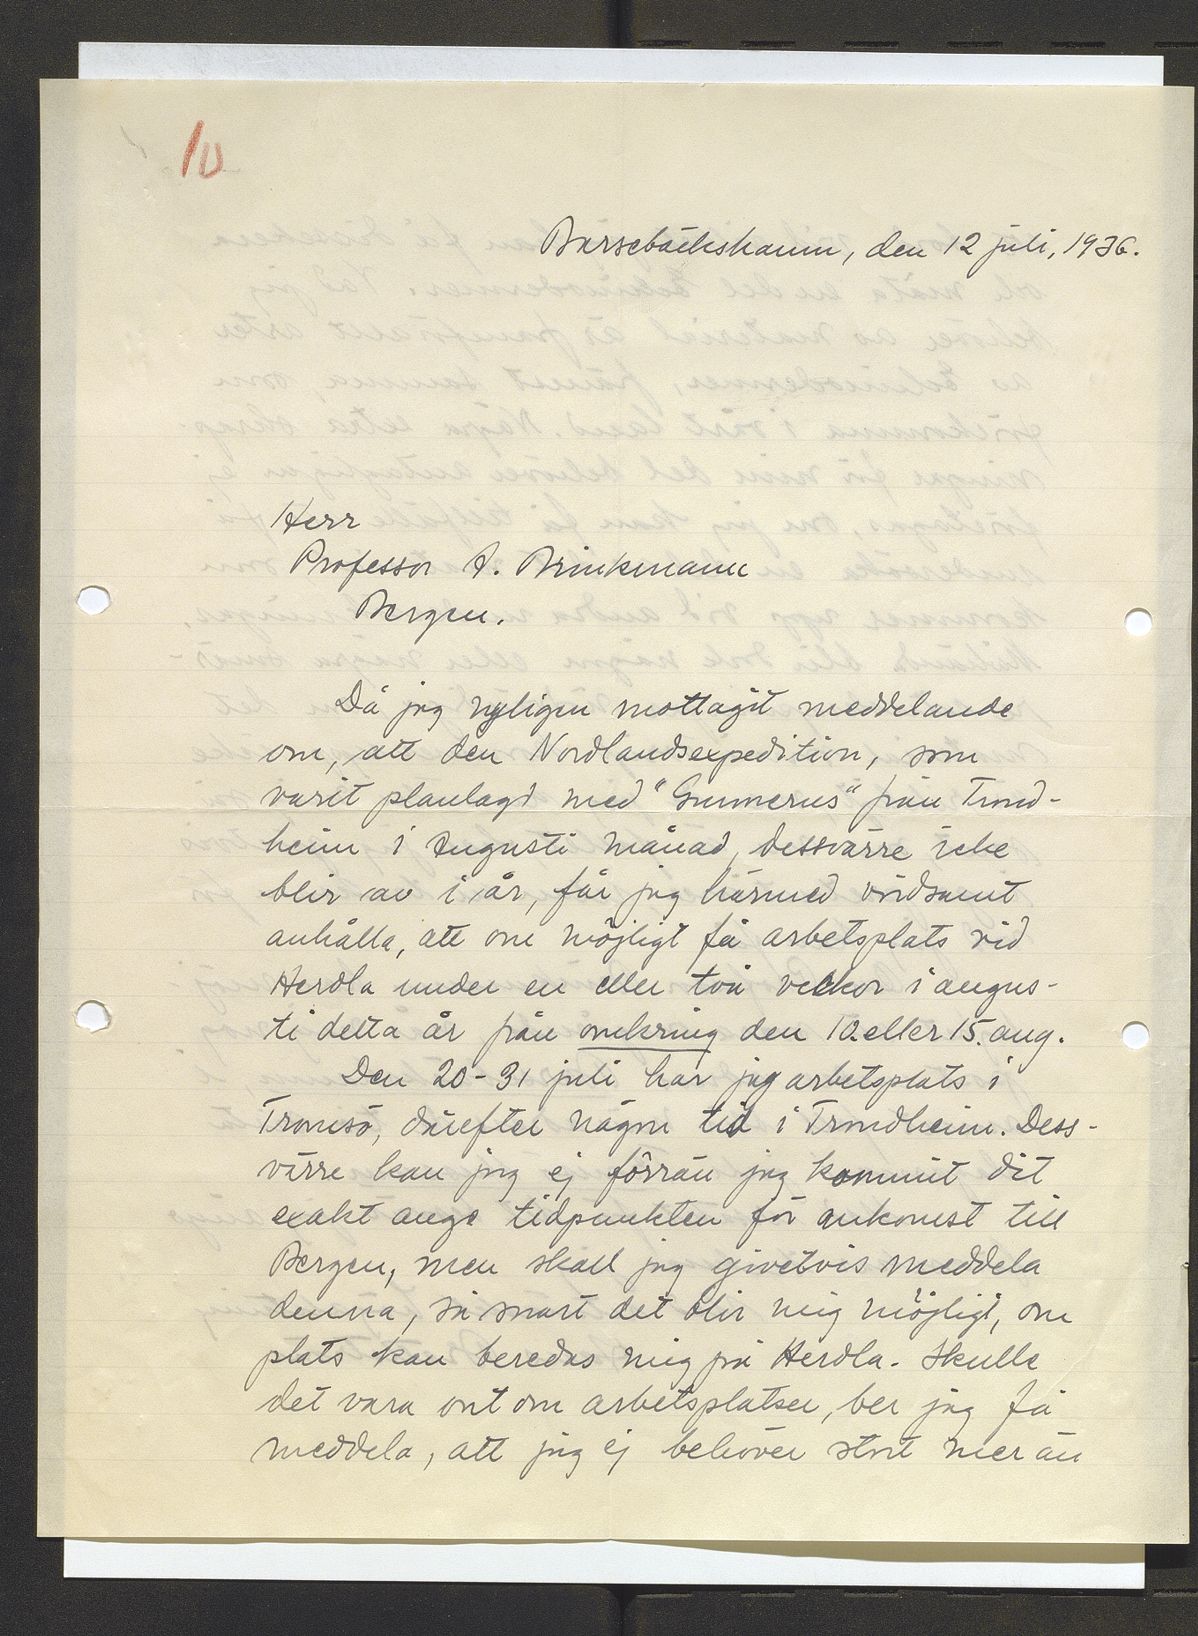 10
Barsebäckshamn, den 12 juli, 1936.
Herr
Professor A. Brinkmann
Bergen.
Då jag nyligen mottagit meddelande
om, att den Nordlandsexpedition, som
varit planlagd med "Gunnerus" från Trond-
heim i Augusti månad, dessvärre icke
blir av i år, får jag härmed vördsamt
anhålla, att om möjligt få arbetsplats vid
Herdla under en eller två veckor i augus-
ti detta år från omkring den 10. eller 15. aug.
Den 20-31 juli har jag arbetsplats i
Tromsö, därefter någon tid i Trondheim. Dess-
värre kan jag ej förrän jag kommit dit
exakt ange tidpunkten för ankomst till
Bergen, men skall jag givetvis meddela
denna, så snart det blir mig möjligt, om
plats kan beredas mig på Herdla. Skulle
det vara ont om arbetsplatser, ber jag få
meddela, att jag ej behöver stort mer än